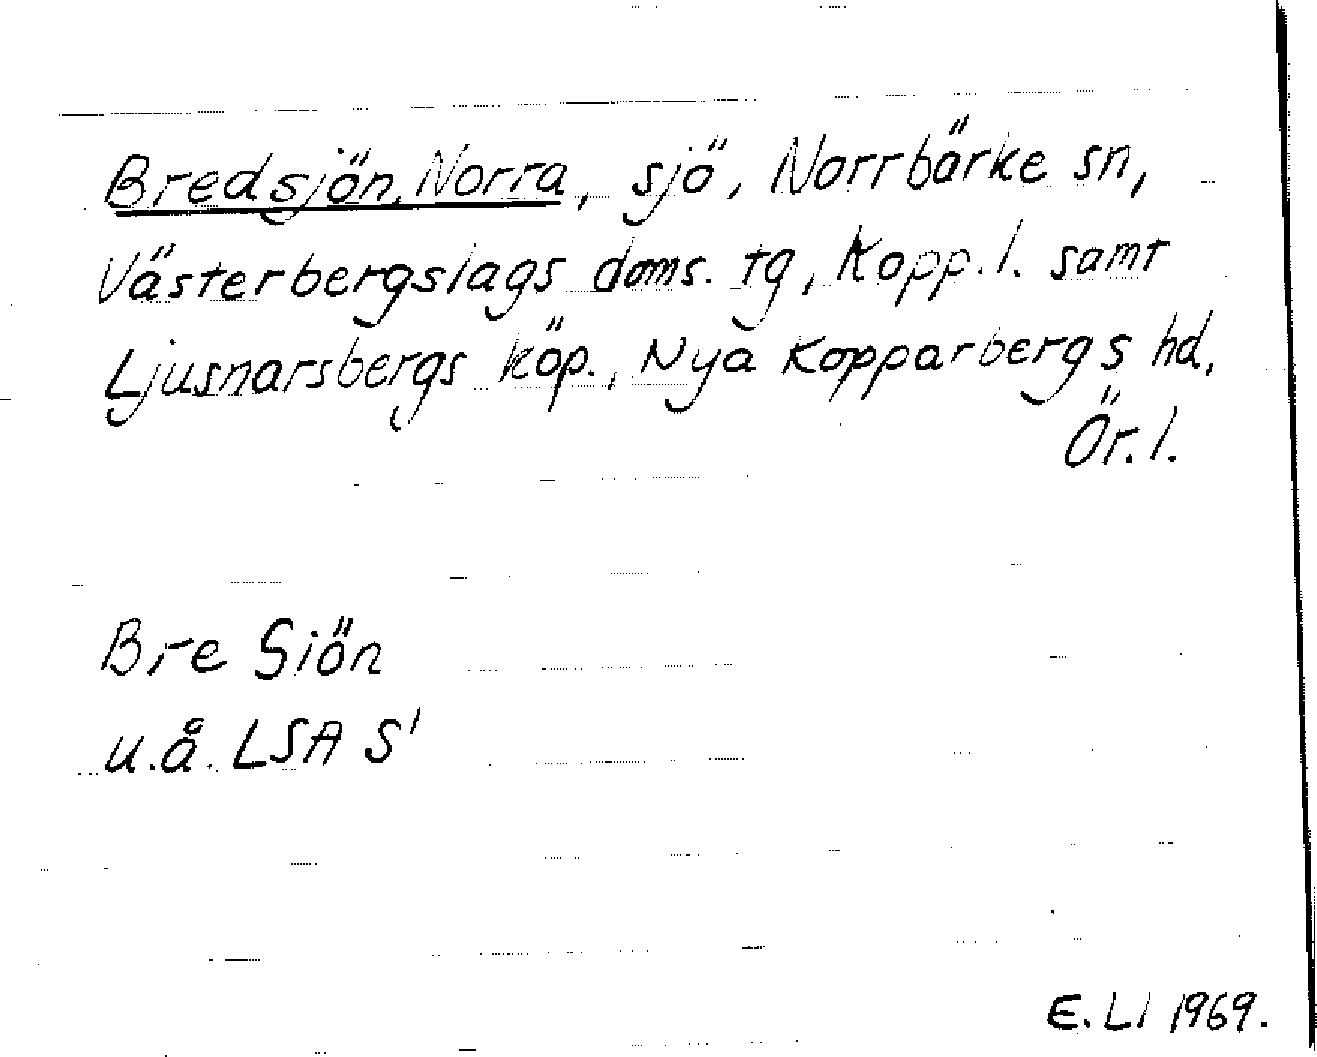 Bredsjön, Norra, sjö, Norrbärke sn,
Västerbergslags doms. tg, Kopp. l. samt
Ljusnarsbergs köp., Nya Kopparbergs hd,
Ör. l.
Bre Siön
u.å. LSA S1
E. Li 1969.